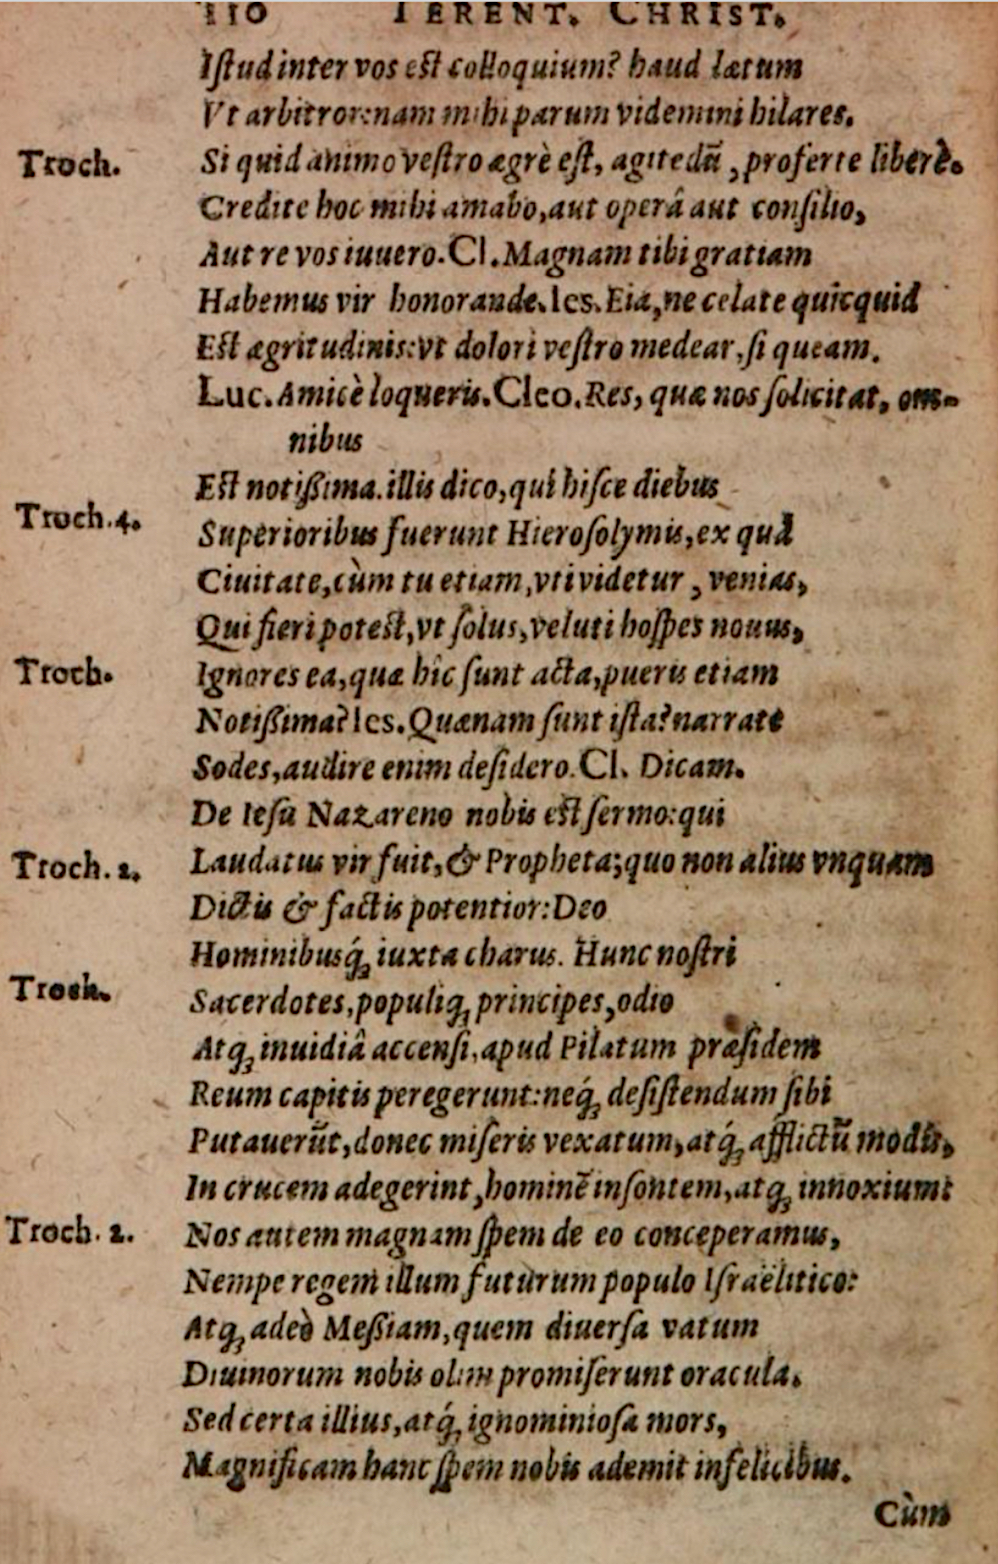 110 TERENT. CHRIST.
Iſtud inter vos eſt colloquium? haud lætum
Vt arbitror: nam mihi parum videmini hilares.
Troch. Si quid animo veſtro ægrè eſt, agitedũ, proferte liberè.
Credite hoc mihi amabo, aut operâ aut conſilio,
Aut re vos iuuero. Cl. Magnam tibi gratiam
Habemus vir honorande. Ies. Eia, ne celate quicquid
Eſt ægritudinis: vt dolori veſtro medear, ſi queam.
Luc. Amicè loqueris. Cleo. Res, quæ nos ſolicitat, om-
nibus
Eſt notißima. illis dico, qui hiſce diebus
Troch. 4. Superioribus fuerunt Hieroſolymis, ex quâ
Ciuitate, cùm tu etiam, vti videtur, venias,
Qui fieri poteſt, vt ſolus, veluti hoſpes nouus,
Troch. Ignores ea, quæ hîc ſunt acta, pueris etiam
Notißima? Ies. Quænam ſunt iſta? narrate
Sodes, audire enim deſidero. Cl. Dicam.
De Ieſu Nazareno nobis eſt ſermo: qui
Troch. 2. Laudatus vir fuit, & Propheta; quo non alius vnquam
Dictis & factis potentior: Deo
Hominibusq́; iuxta charus. Hunc noſtri
Troch. Sacerdotes, populiq; principes, odio
Atq; inuidiâ accenſi, apud Pilatum præſidem
Reum capitis peregerunt: neq́; deſiſtendum ſibi
Putauerũt, donec miſeris vexatum, atq́; afflictũ modis,
In crucem adegerint, hominẽ inſontem, atq; innoxium:
Troch. 2. Nos autem magnam ſpem de eo conceperamus,
Nempe regem illum futurum populo Iſraëlitico:
Atq; adeò Meßiam, quem diuerſa vatum
Diuinorum nobis olim promiſerunt oracula.
Sed certa illius, atq́; ignominioſa mors,
Magnificam hanc ſpem nobis ademit infelicibus.
Cùm